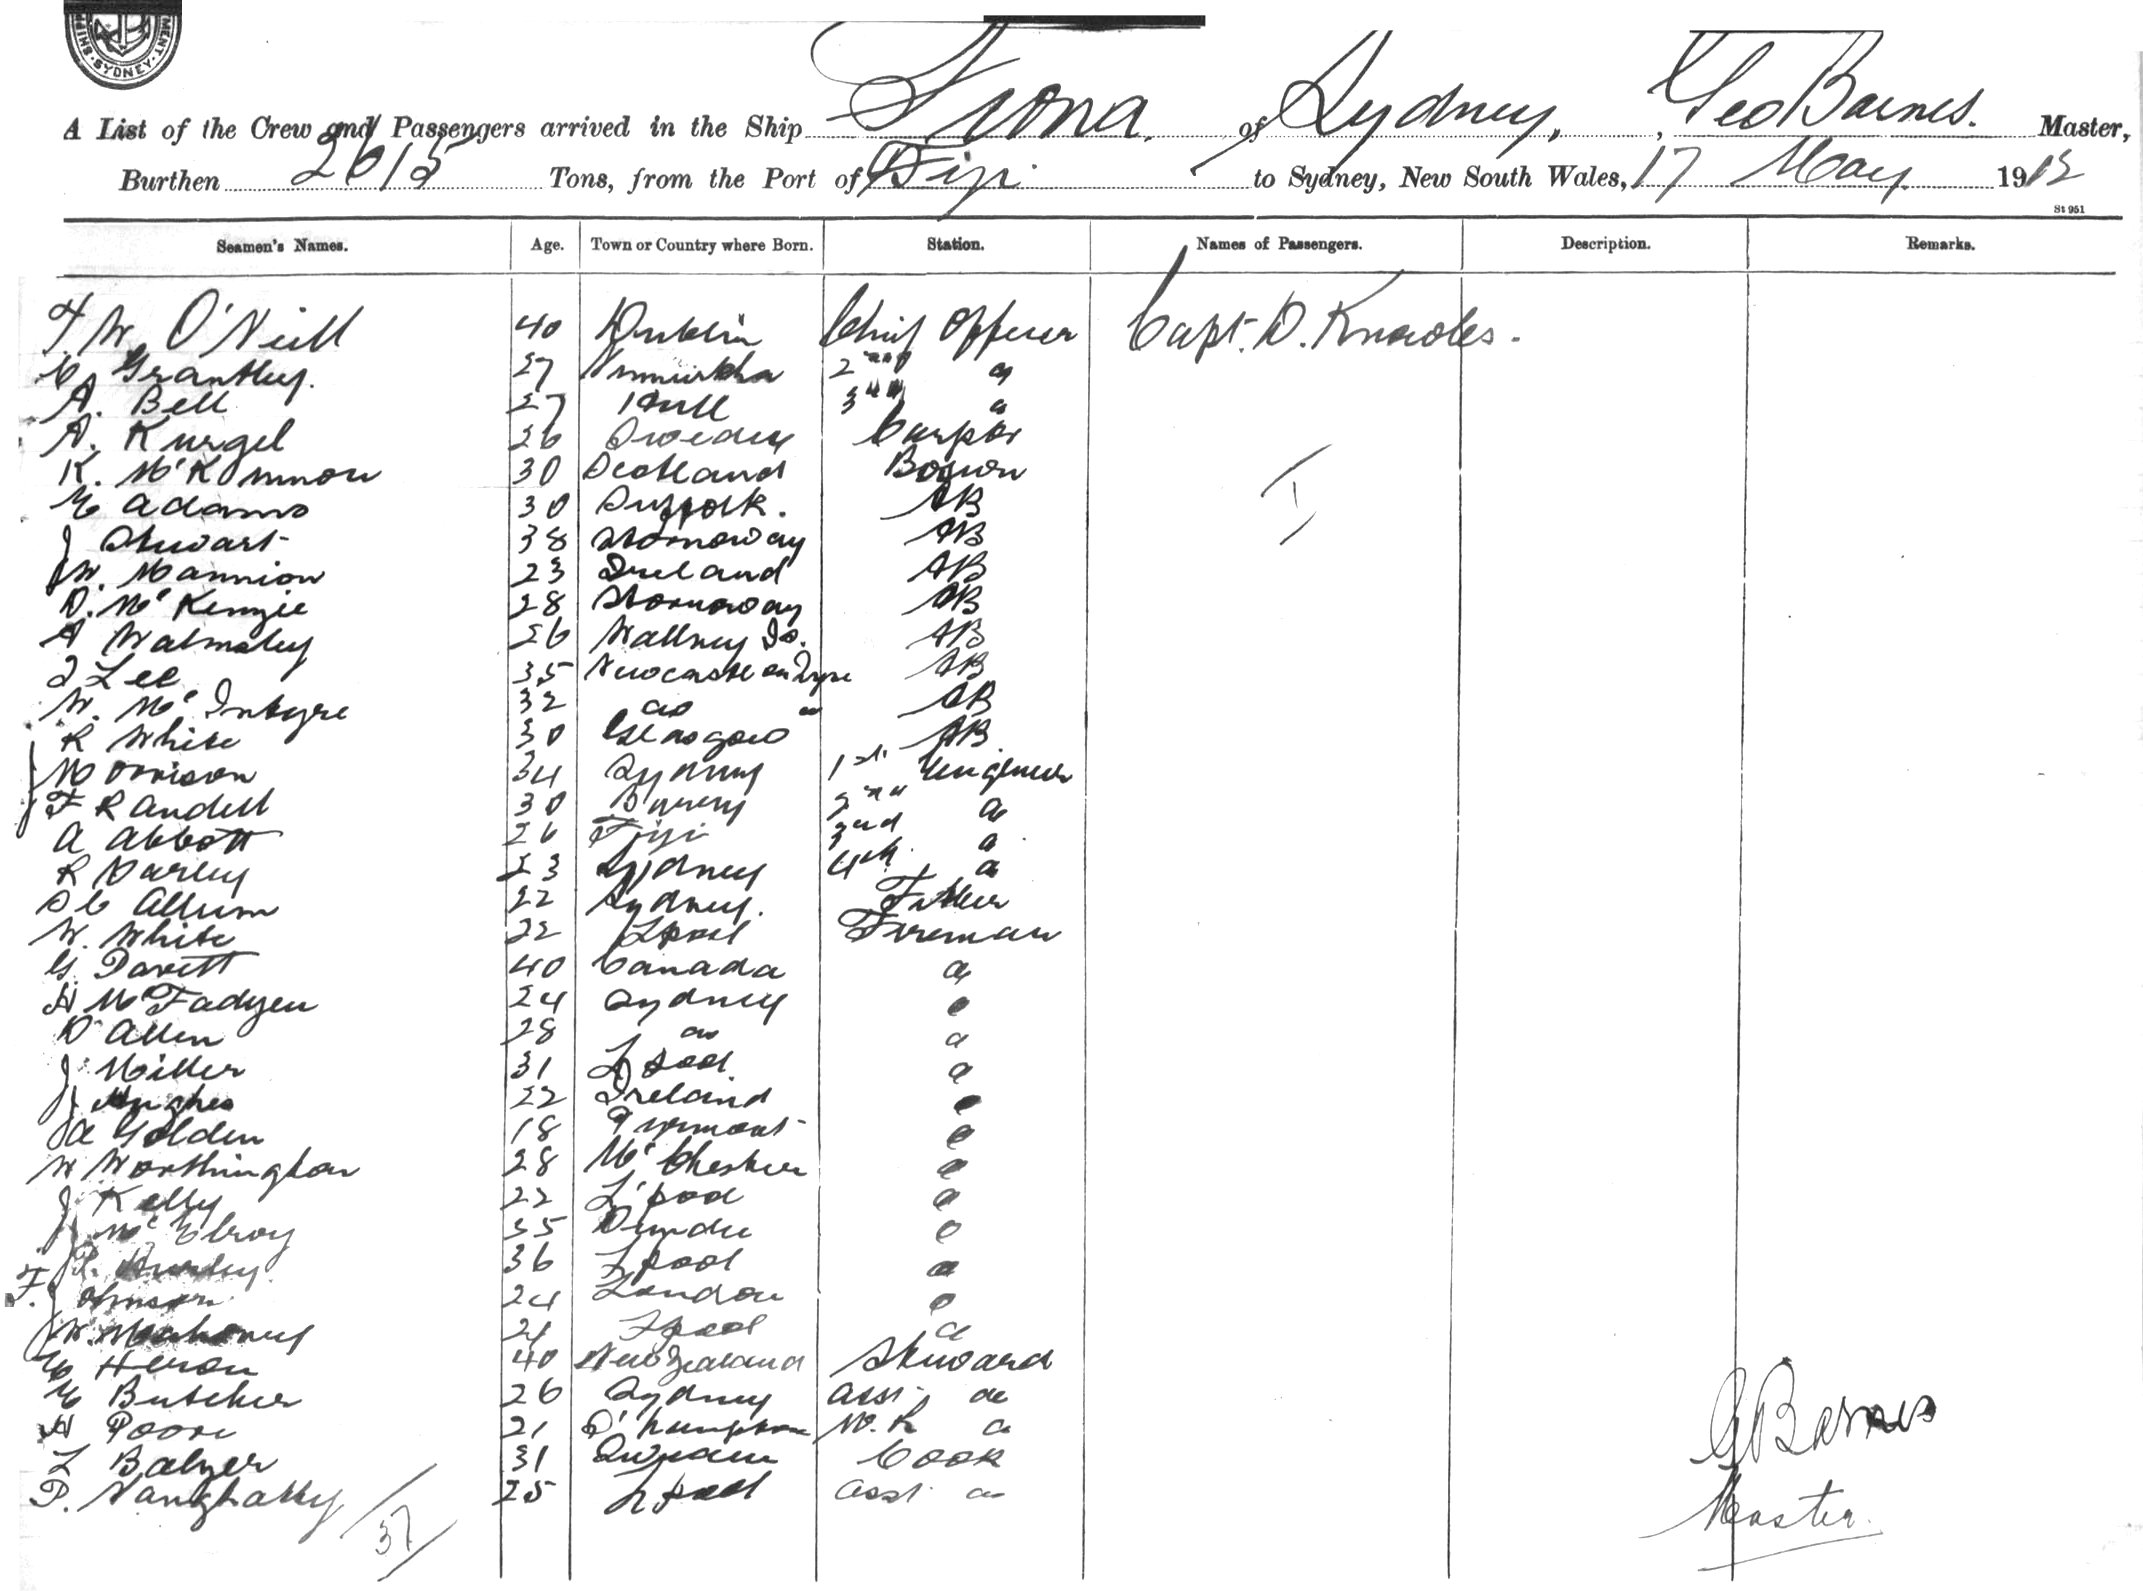 SYDNEY
A List of the Crew and Passengers arrived in the Ship Fiona. of Sydney, Geo Barnes. Master,
Burthen 2615 Tons, from the Port of Fiji to Sydney, New South Wales, 17 May 1913
St 951
Seamen's Names. Age. Town or Country where Born. Station. Names of Passengers. Description. Remarks.
W. O'Neill 40 Dublin Chief Officer Capt. D. Knowles.
C. Grantley. 27 2nd "
A. Bell 27 Hull 3rd "
A. Kurgel 26 Sweden Carptr
K. McKinnon 30 Scotland Bosun
E Adams 30 Suffolk. AB
J Stewart 38 Stornoway AB
W. Mannion 23 Ireland AB
D. McKenzie 28 Stornoway AB
A Walmsley 26 Wallney Is. AB
Lee 35 Newcastle on Tyne AB
W. McIntyre 32 do " AB
R White 30 Glasgow AB
J Morrison 34 Sydney 1st Engineer
F Randell 30 2nd "
A Abbott 26 Fiji 3rd "
R Darley 23 Sydney 4th "
S C Allum 22 Sydney.
W. White 22 Lpool Fireman
G. 40 Canada "
H McFadyen 24 Sydney "
D Allen 28 do "
J Miller 31 Lpool "
J Hughes 22 Ireland "
A Golden 18 "
W Worthington 28 McChester "
J Kelly 22 L'pool "
J McElroy 35 Dundee "
36 Lpool "
F. Johnson 24 London "
W. Mahoney 21 Lpool "
C Heron 40 New Zealand Steward
E Butcher 26 Sydney asst do
H Poore 21 S'hampton
L Balzer 31 Sweden Cook
P. Naughalty 25 Lpool asst "
37
G Barnes
Master.